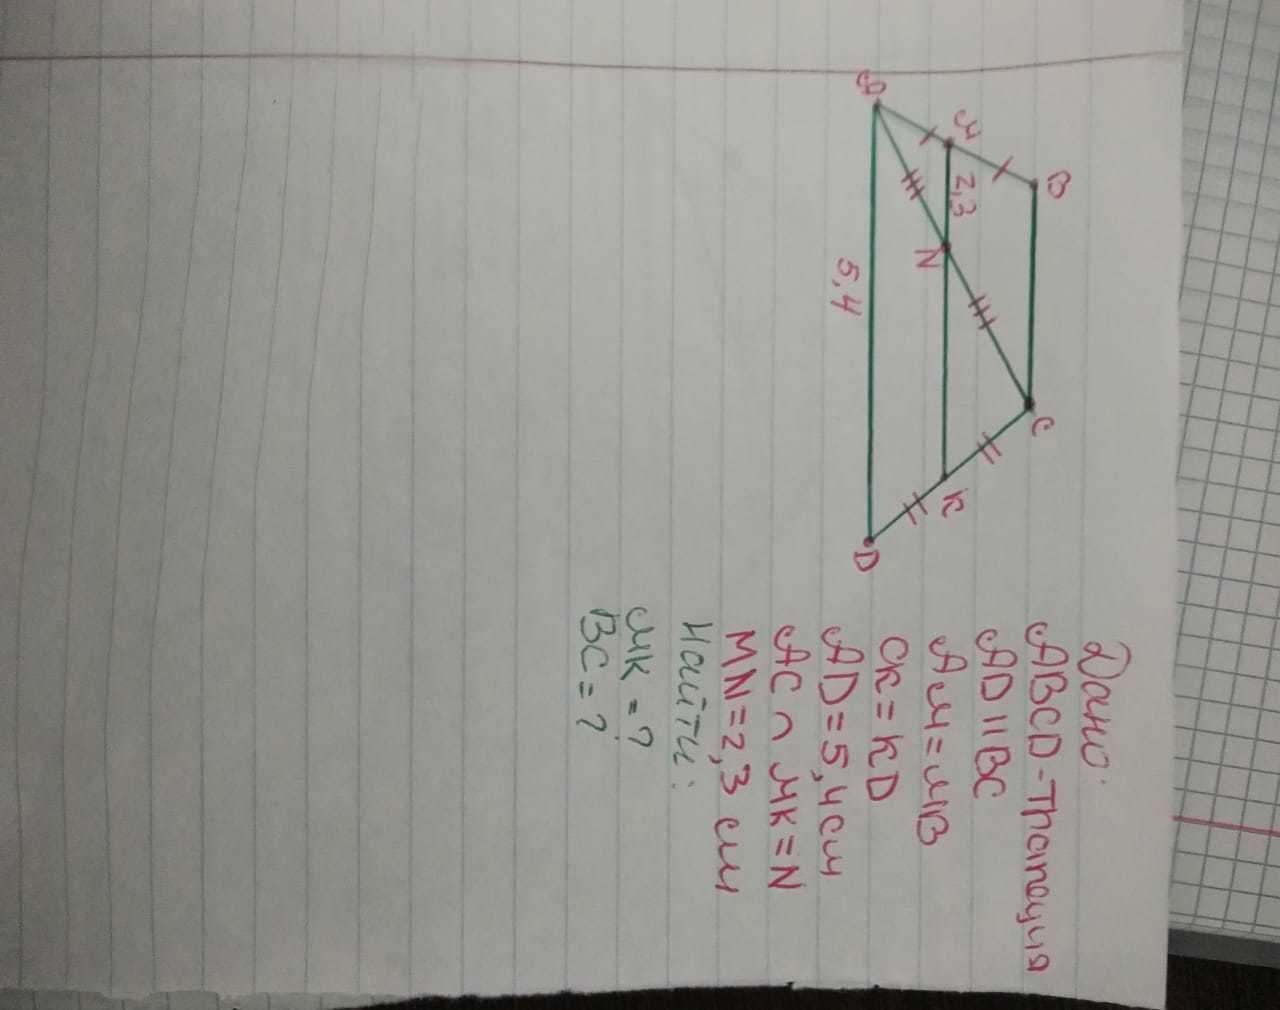 B
C
M
2,3
N
K
A
5,4
D
Дано:
ABCD - трапеция
AD || BC
AM = MB
CK = KD
AD = 5,4 см
AC ∩ MK = N
MN = 2,3 см
Найти:
MK = ?
BC = ?